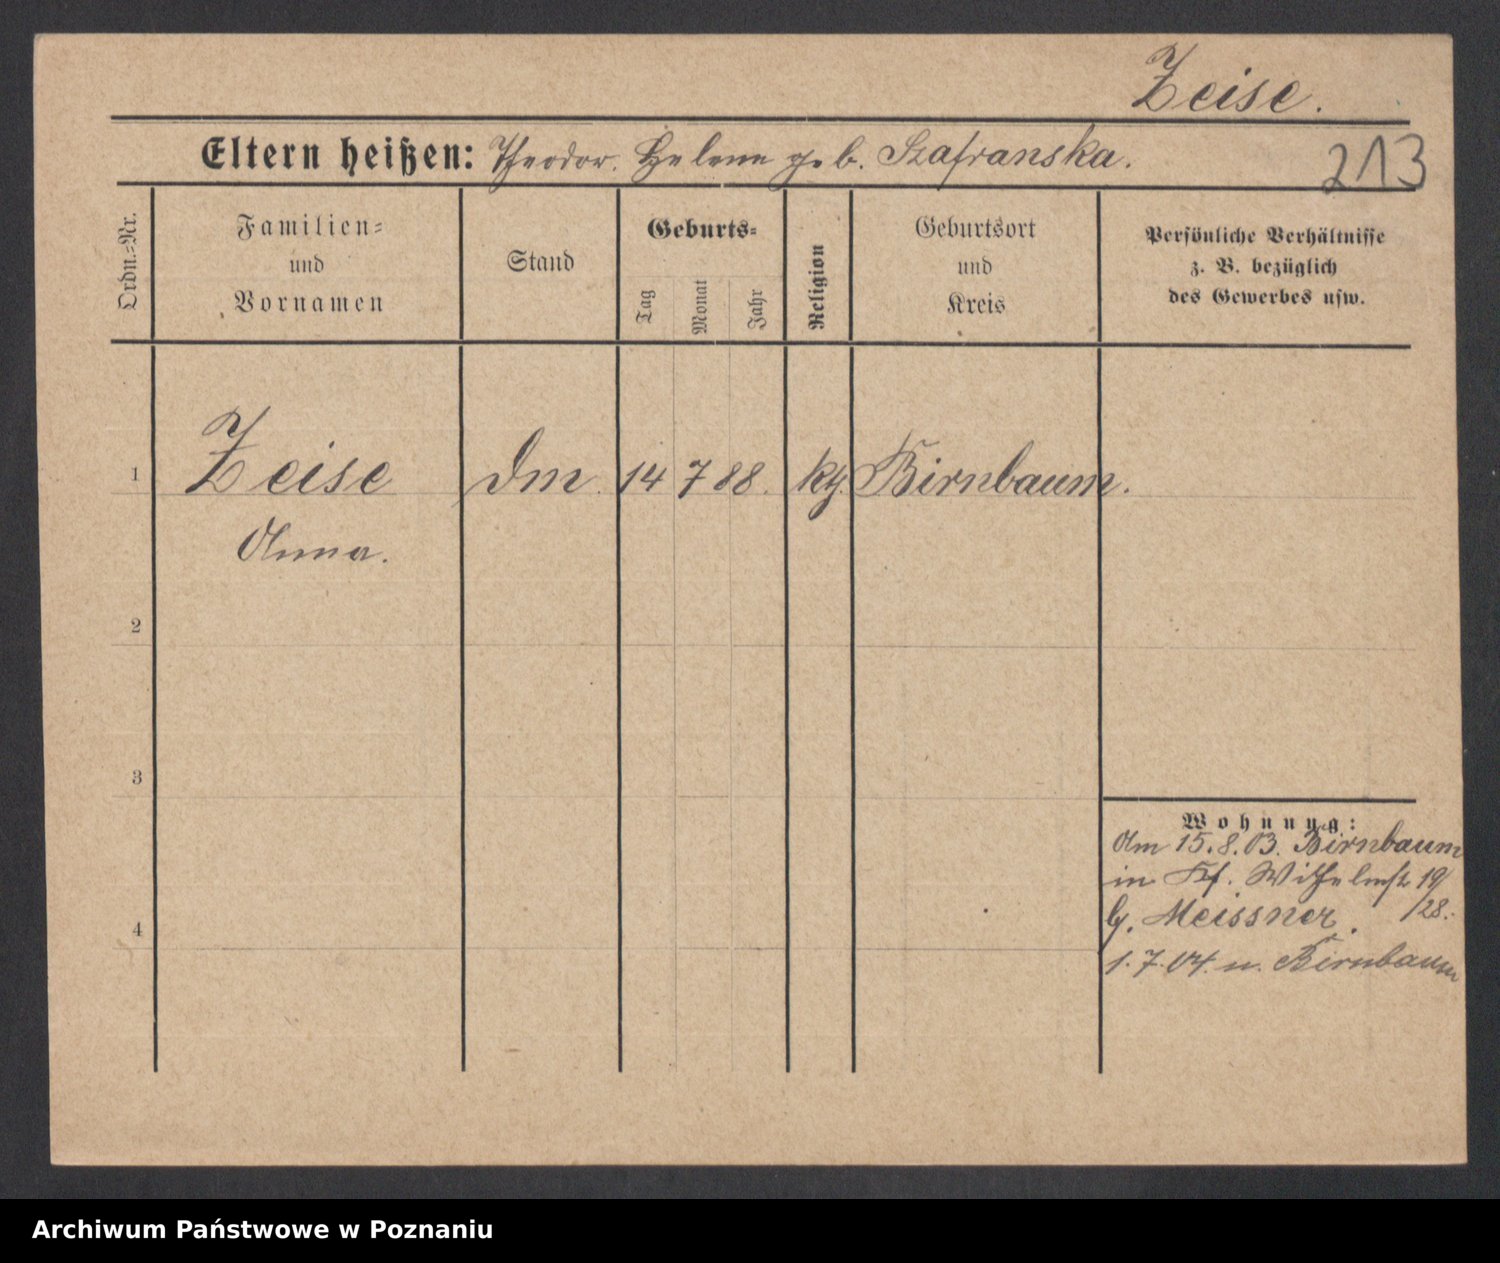 Zeise.
Eltern heißen: Theodor. Helene geb. Szafranska.
213
Ordn.=Nr.
Familien=
und
Vornamen
Stand
Geburts=
Tag
Monat
Jahr
Religion
Geburtsort
und
Kreis
Persönliche Verhältnisse
z. B. bezüglich
des Gewerbes usw.
1
Zeise
Dm.
14
7
88.
kt.
Birnbaum.
Anna.
2
3
4
Wohnung:
Am 15.8.03. Birnbaum
in Wilhelmstr 19/
/28.
b. Meissner.
1.7.04. n. Birnbaum
Archiwum Państwowe w Poznaniu